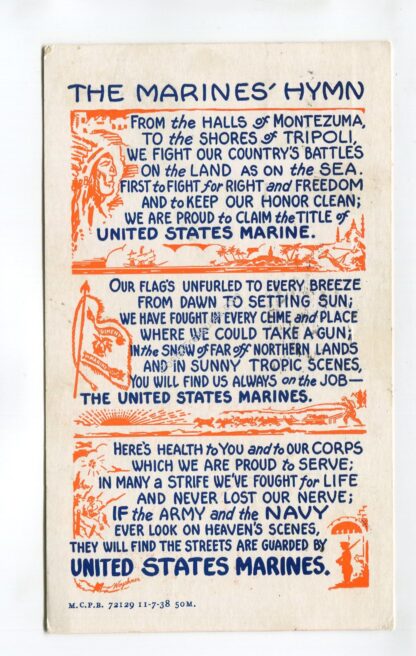 THE MARINES' HYMN
FROM the HALLS of MONTEZUMA,
TO the SHORES of TRIPOLI,
WE FIGHT OUR COUNTRY'S BATTLES
ON the LAND AS ON the SEA.
FIRST to FIGHT for RIGHT and FREEDOM
AND to KEEP OUR HONOR CLEAN;
WE ARE PROUD to CLAIM the TITLE of
UNITED STATES MARINE.
OUR FLAG'S UNFURLED TO EVERY BREEZE
FROM DAWN TO SETTING SUN;
WE HAVE FOUGHT IN EVERY CLIME and PLACE
WHERE WE COULD TAKE A GUN;
IN the SNOW of FAR off NORTHERN LANDS
AND IN SUNNY TROPIC SCENES,
YOU WILL FIND US ALWAYS on the JOB—
THE UNITED STATES MARINES.
HERE'S HEALTH to YOU and to OUR CORPS
WHICH WE ARE PROUD to SERVE;
IN MANY a STRIFE WE'VE FOUGHT for LIFE
AND NEVER LOST OUR NERVE;
IF the ARMY and the NAVY
EVER LOOK ON HEAVEN'S SCENES,
THEY WILL FIND THE STREETS ARE GUARDED BY
UNITED STATES MARINES.
M.C.P.B. 72129 11-7-38 50M.